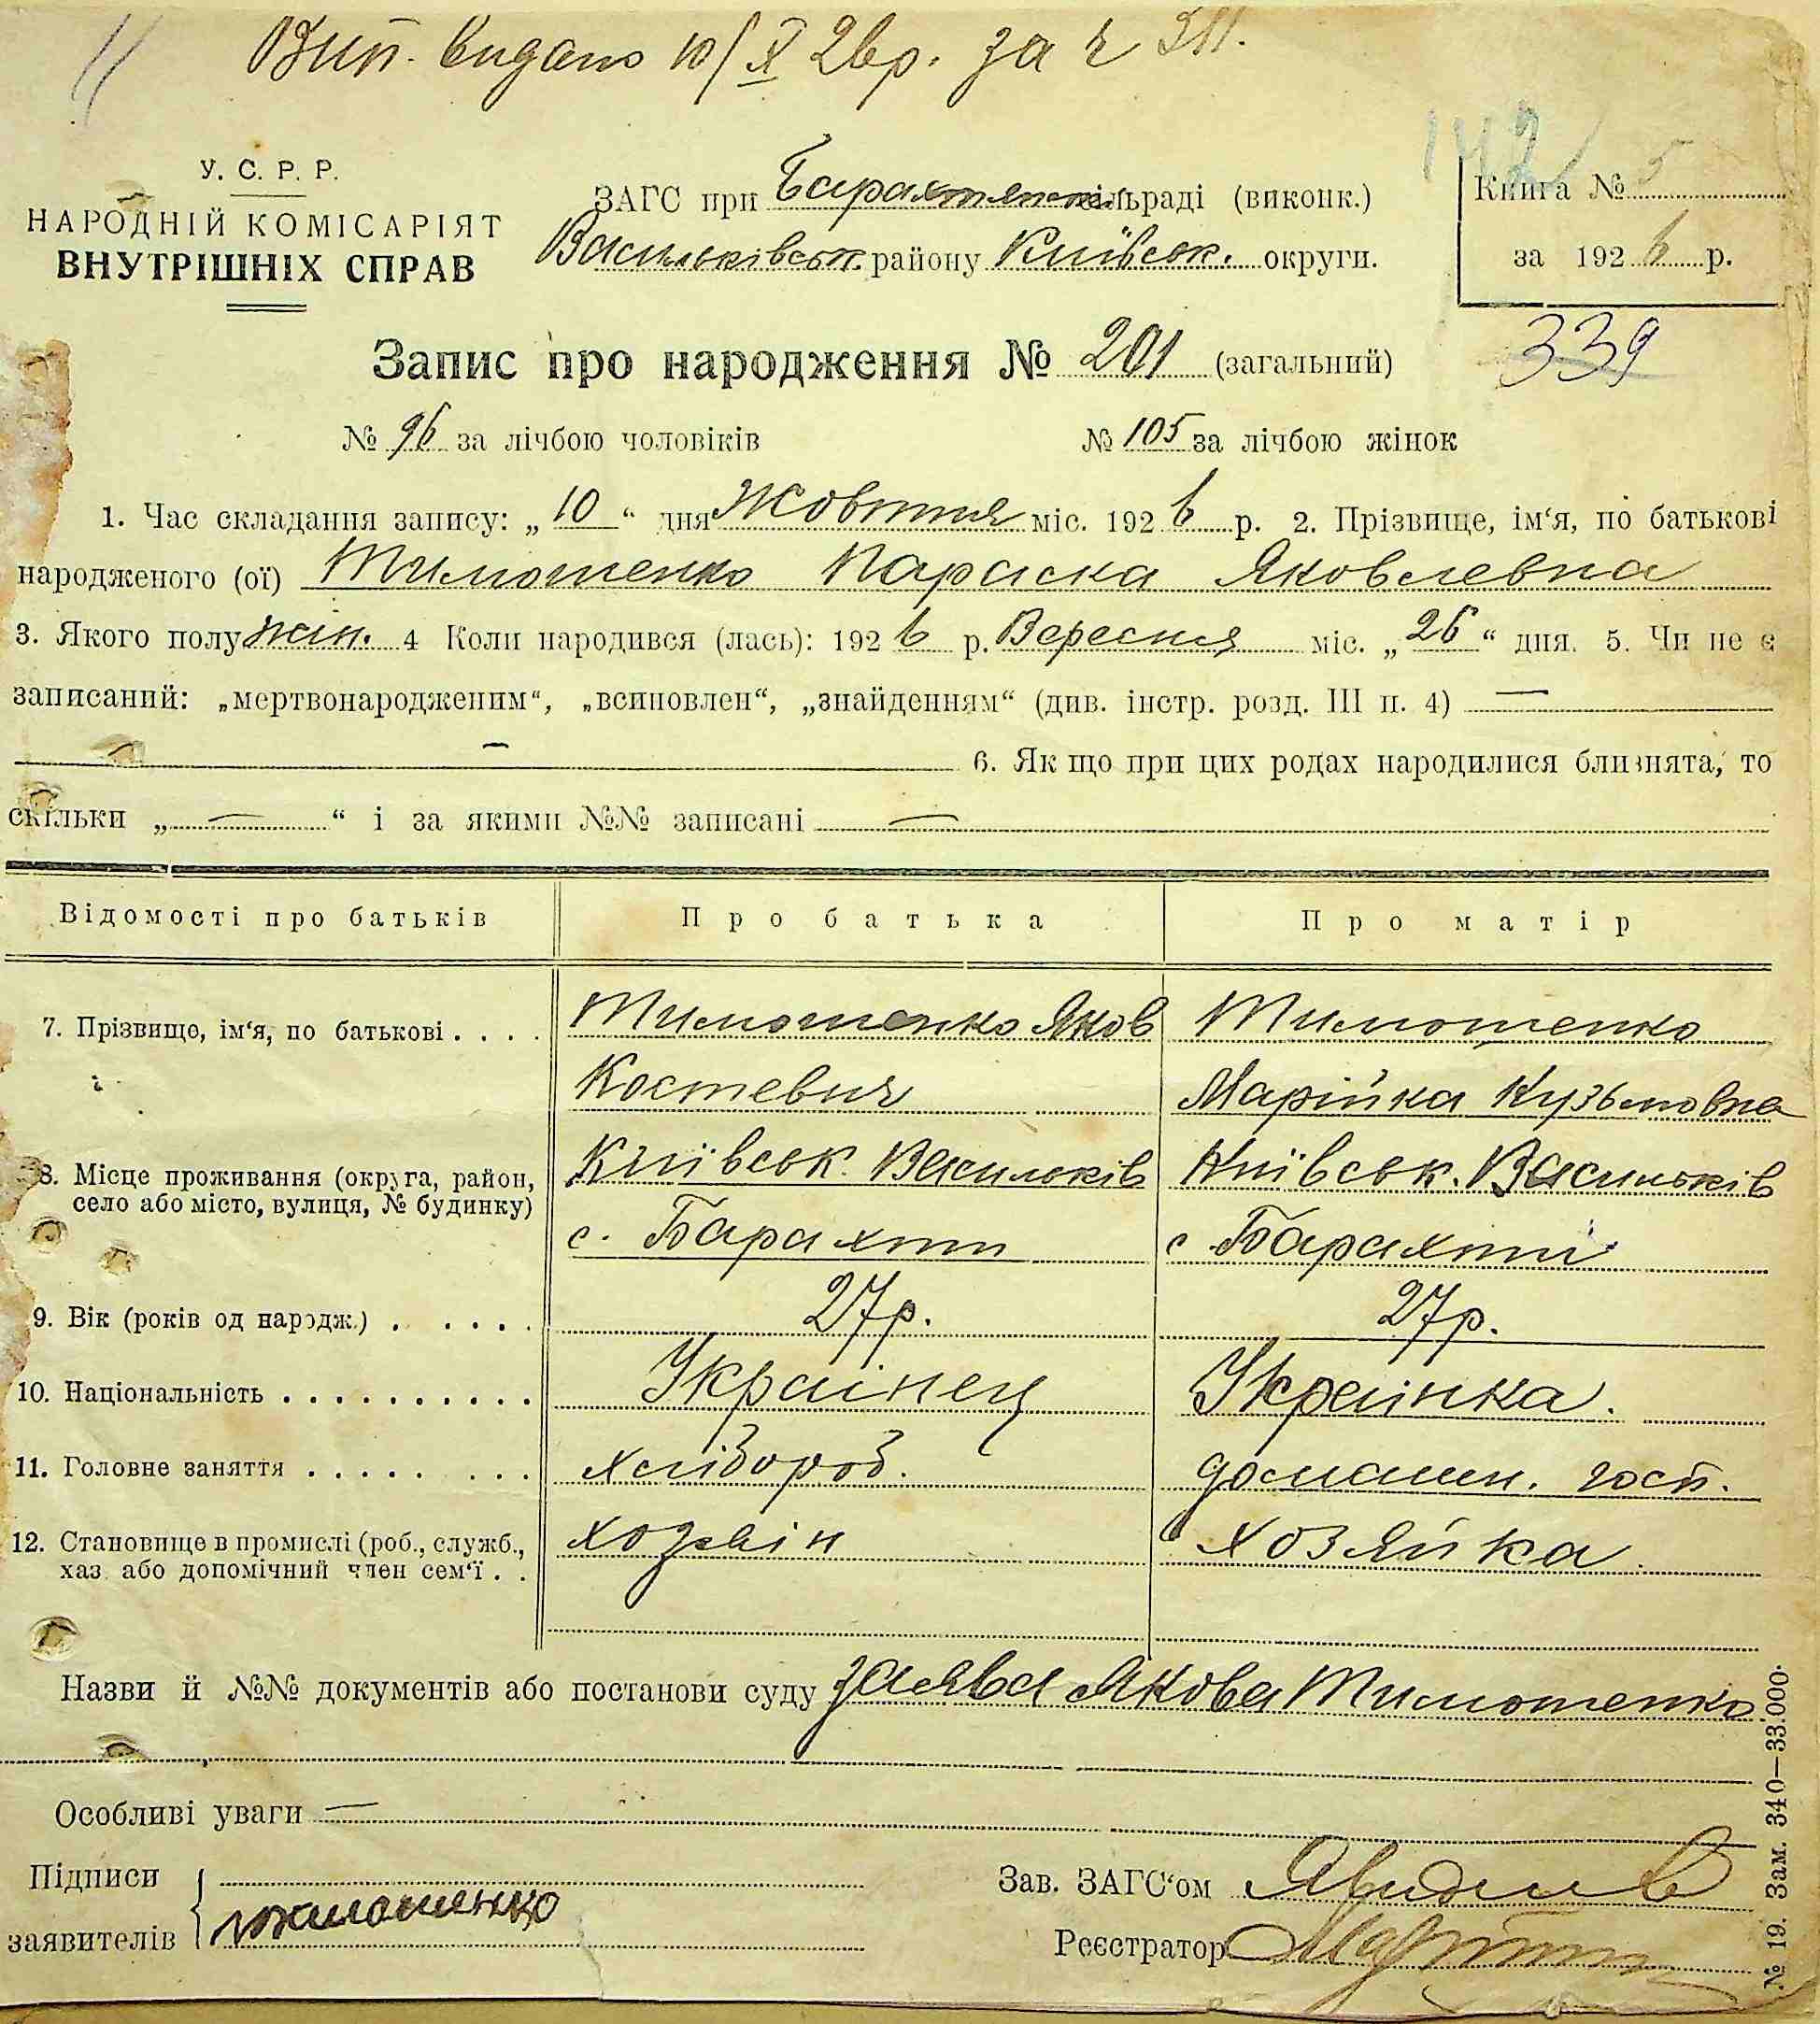 Вип. видано 10/X 26р. за ч 311.
142
У. С. Р. Р.
НАРОДНІЙ КОМІСАРІЯТ
ВНУТРІШНІХ СПРАВ
ЗАГС при Барахтянські сільраді (виконк.)
Васильківськ. району Київськ. округи.
Книга № 5
за 1926 р.
Запис про народження № 201 (загальний)
339
№ 96 за лічбою чоловіків № 105 за лічбою жінок
1. Час складання запису: „10“ дня Жовтня міс. 1926 р. 2. Прізвище, ім‘я, по батькові
народженого (ої) Тимошенко Параска Яковлевна
3. Якого полу жін. 4 Коли народився (лась): 1926 р. Вересня міс. „26“ дня. 5. Чи не є
записаний: „мертвонародженим“, „всиновлен“, „знайденням“ (див. інстр. розд. III п. 4) —
— 6. Як що при цих родах народилися близнята, то
скільки „—“ і за якими №№ записані —
Відомості про батьків Про батька Про матір
7. Прізвище, ім‘я, по батькові . . . . Тимошенко Яков Тимошенко
Костевич Марійка Кузьмовна
8. Місце проживання (округа, район, Київськ. Васильків Київськ. Васильків
село або місто, вулиця, № будинку)
с. Барахти с. Барахти
9. Вік (років од народж.) . . . . . 27р. 27р.
10. Національність . . . . . . . . . . Українец Українка.
11. Головне заняття . . . . . . . . Хлібороб. домашн. госп.
12. Становище в промислі (роб., служб., хозяін хозяйка.
хаз. або допомічний член сем‘ї . .
Назви й №№ документів або постанови суду заява Якова Тимошенко
Особливі уваги —
Підписи
заявителів Тимошенко
Зав. ЗАГС‘ом
Реєстратор
№ 19. Зам. 340—33.000.